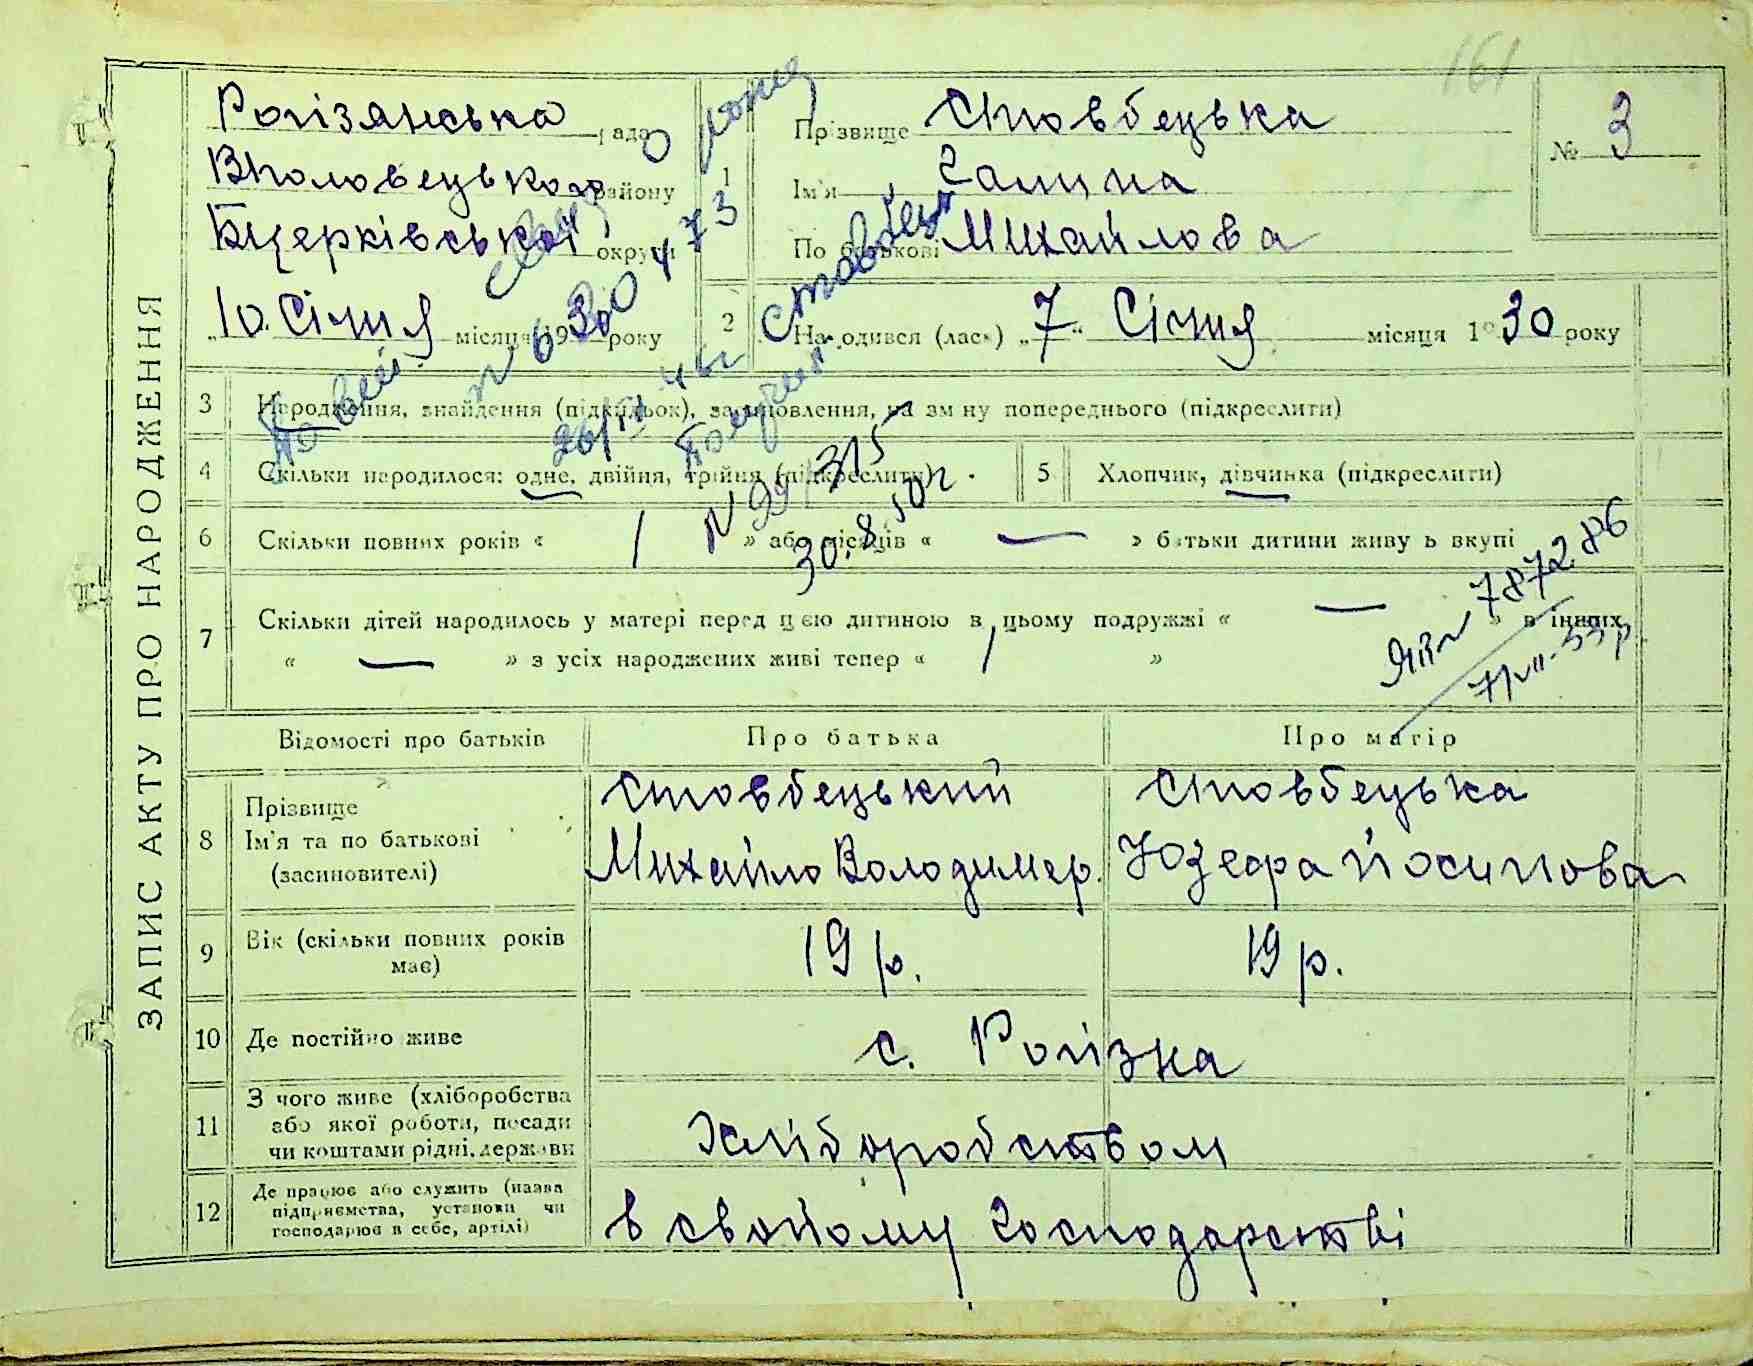 161
ЗАПИС АКТУ ПРО НАРОДЖЕННЯ
Рогізянська рада
Вполовецького району
Бцерківської округи
„10. Січня місяця 1930 року
1 Прізвище Стовбецька
Ім'я Галина
По батькові Михайлова
№ 3
2 Народився (лась) „7“ Січня місяця 1930 року
3 Народження, знайдення (підкидьок), засиновлення, на зміну попереднього (підкреслити)
4 Скільки народилося: одне, двійня, трійня (підкреслити).
5 Хлопчик, дівчинка (підкреслити)
6 Скільки повних років « 1 » або місяців « — » батьки дитини живуть вкупі
7 Скільки дітей народилось у матері перед цією дитиною в цьому подружжі « — » в інших
« — » з усіх народжених живі тепер « 1 »
Відомості про батьків
Про батька
Про матір
8 Прізвище
Ім'я та по батькові
(засиновителі)
Стовбецький
Михайло Володимер.
Стовбецька
Юзефа Йосипова
9 Вік (скільки повних років
має)
19 р.
19 р.
10 Де постійно живе
с. Рогізна
11 З чого живе (хліборобства
або якої роботи, посади
чи коштами рідні, держави
Хліборобством
12 Де працює або служить (назва
підприємства, установи чи
господарює в себе, артілі)
в свойому господарстві
№ 99/315
30.8.50 г
787286
7/VII-55 р